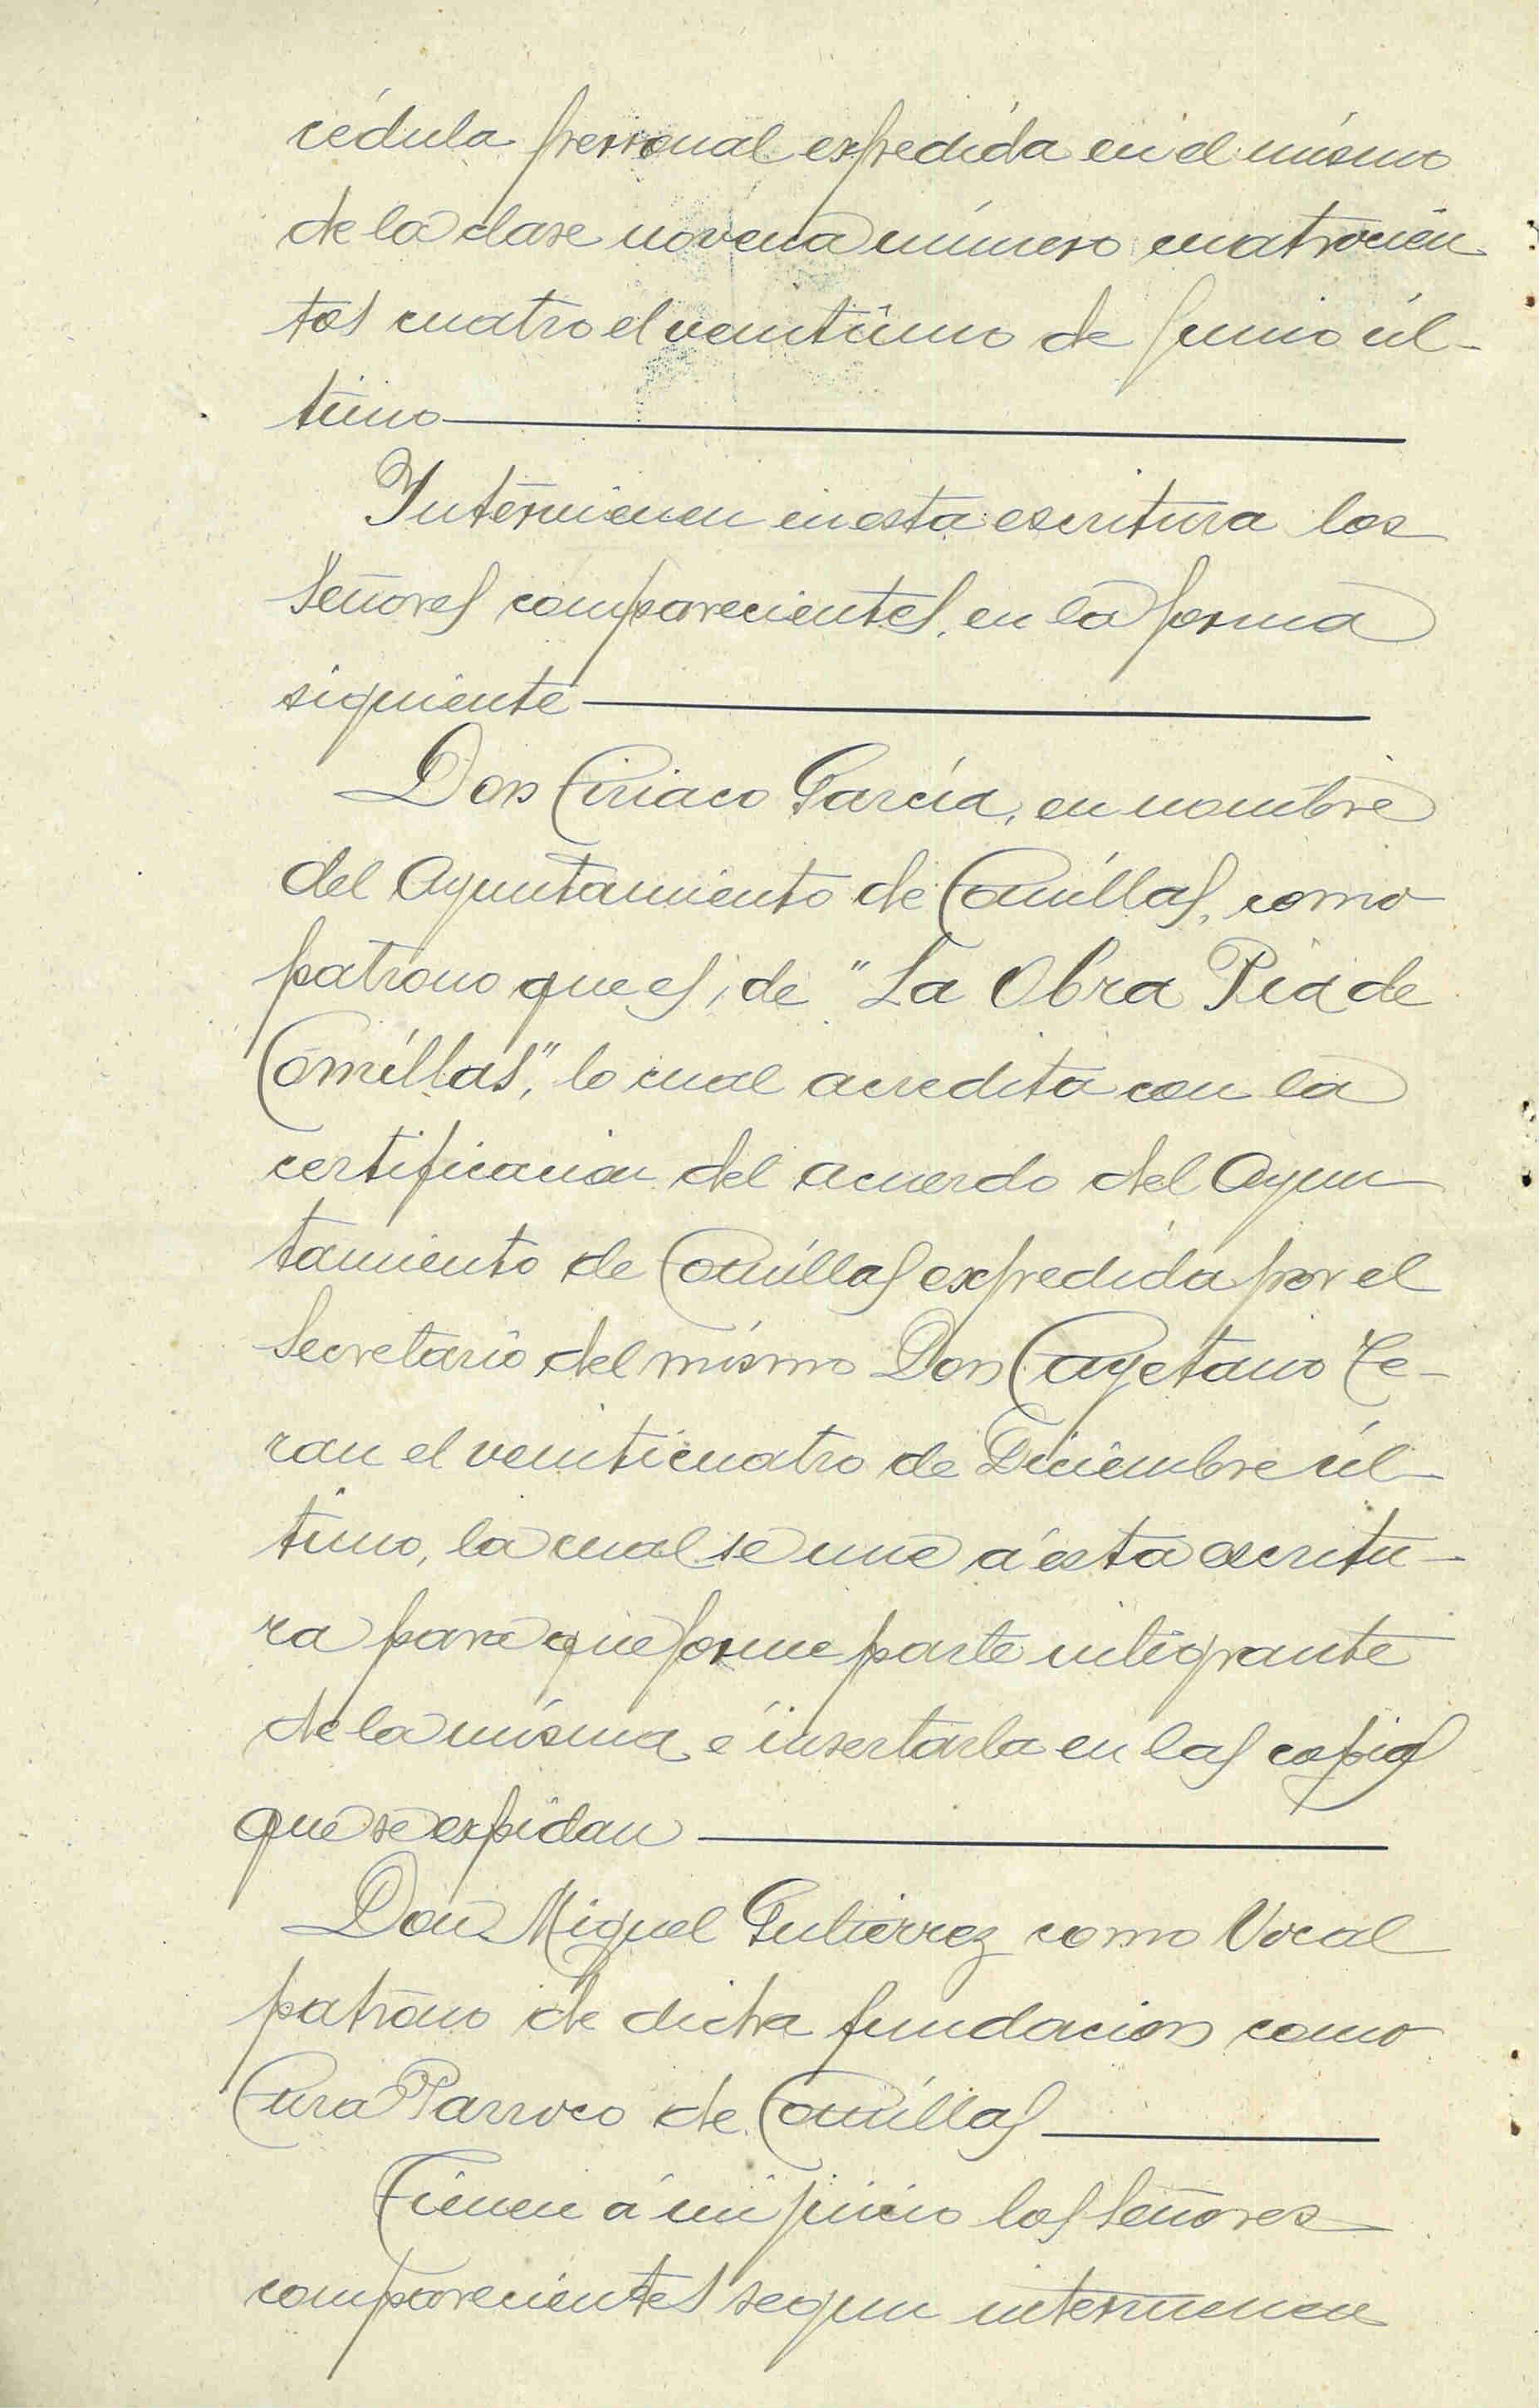 cédula personal expedida en el mismo
de la clase novena número cuatrocien
tos cuatro el veintiuno de Junio úl-
timo
Intervienen en esta escritura los
Señores comparecientes, en la forma
siguiente
Don Ciriaco García, en nombre
del Ayuntamiento de Comillas, como
patrono que es, de "La Obra Pia de
Comillas", lo cual acredita con la
certificacion del acuerdo del Ayun
tamiento de Comillas expedida por el
Secretario del mismo Don Cayetano Te-
ran el veinticuatro de Diciembre úl-
timo, la cual se une á esta escritu-
ra para que forme parte integrante
de la misma é insertarla en las copias
que se expidan
Don Miguel Gutierrez como Vocal
patrono de dicha fundacion como
Cura Parroco de Comillas
Tienen á mi juicio los Señores
comparecientes segun intervienen